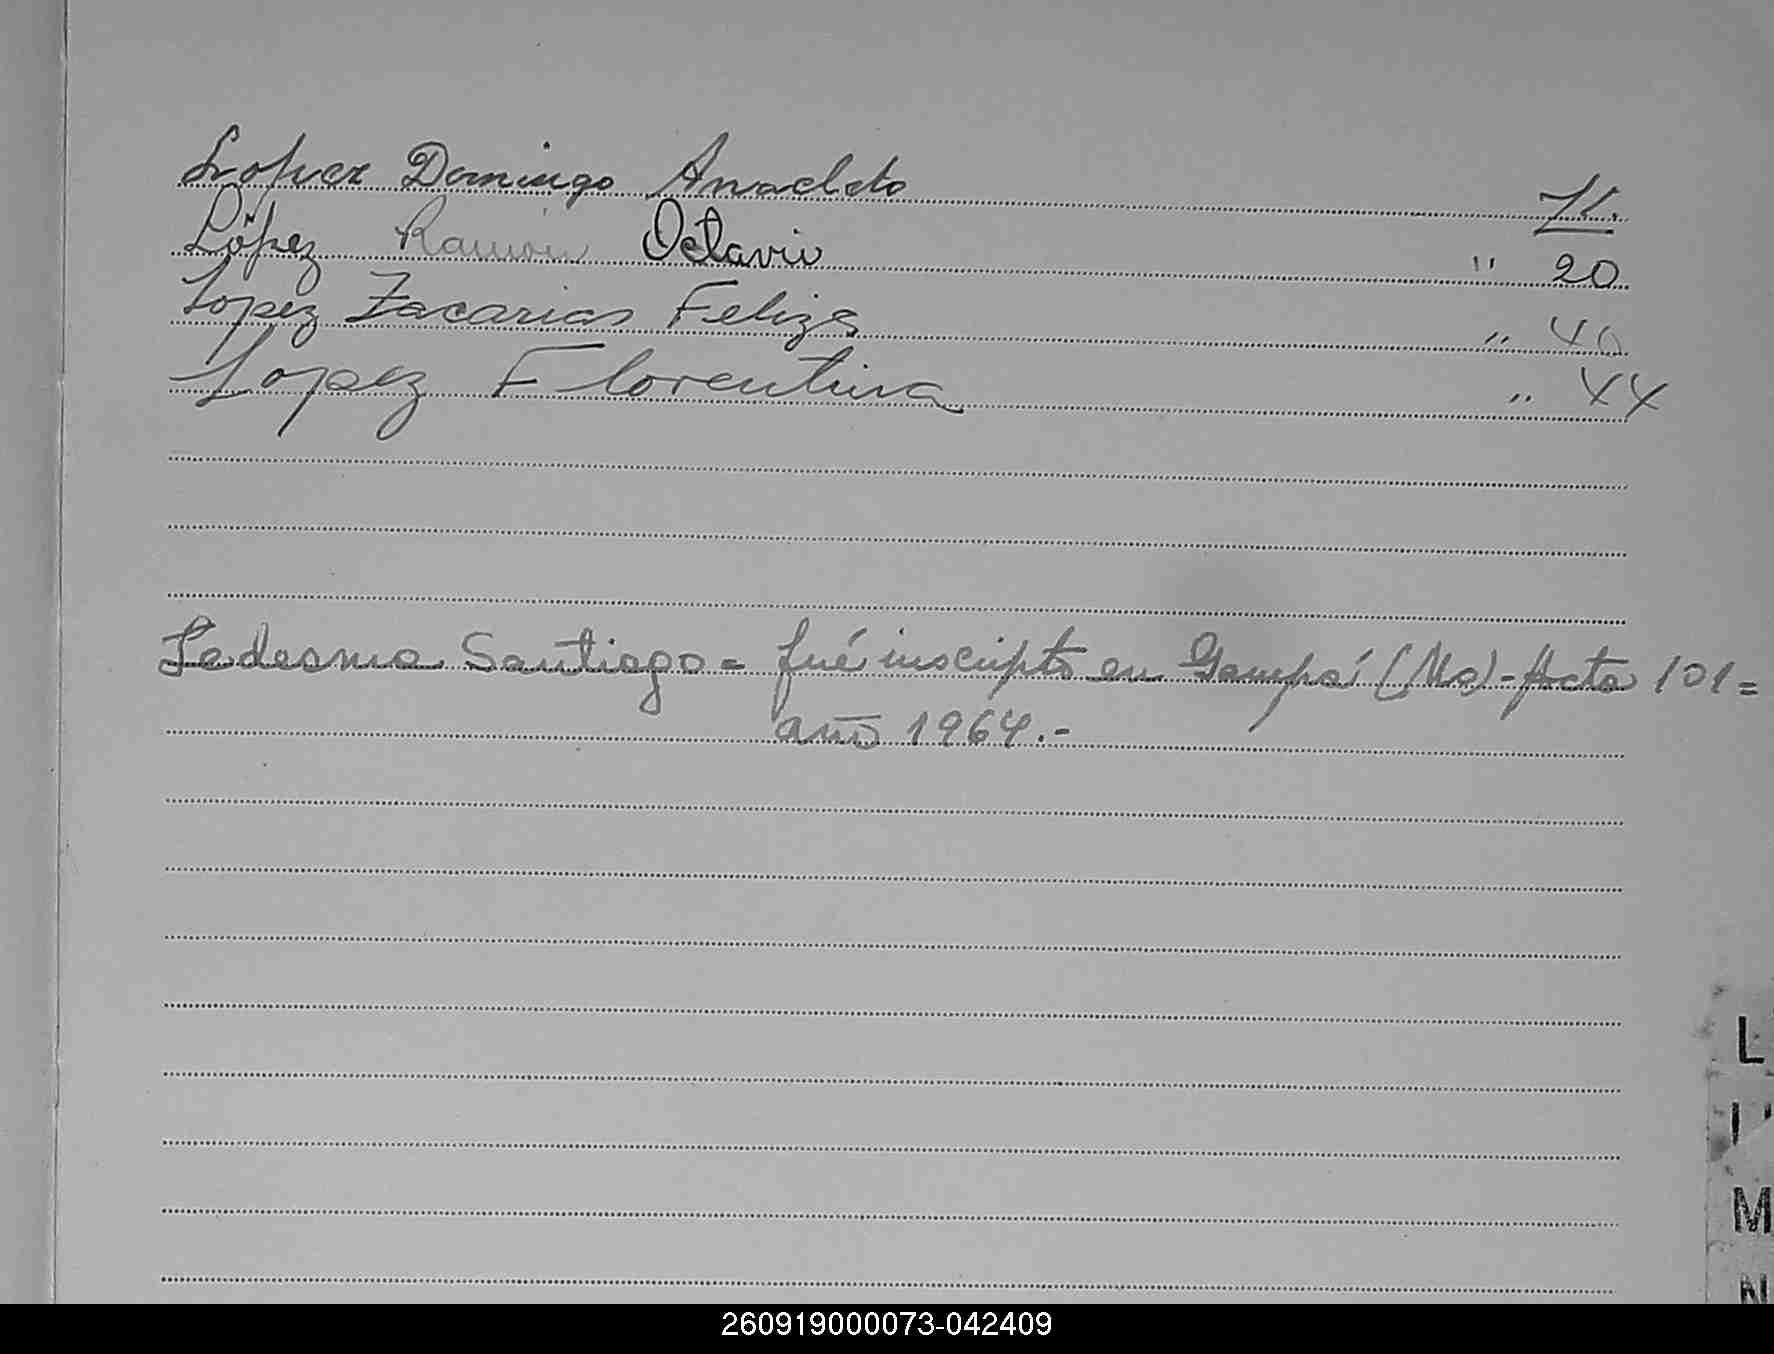 Lopez Domingo Anacleto
López Ramón Octavio " 20
Lopez Zacarias Feliza " 40
Lopez Florentina " 44
Ledesma Santiago = fué inscripto en (Ms) - Acta 101 =
año 1964.-
L
M
N
260919000073-042409